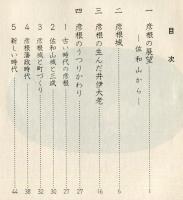 目次
一 彦根の展望
―佐和山から― 1
二 彦根城 6
三 彦根の生んだ井伊大老 16
四 彦根のうつりかわり 27
1 古い時代の彦根 27
2 佐和山城と三成 30
3 彦根城と町づくり 32
4 彦根藩政時代 38
5 新しい時代 44